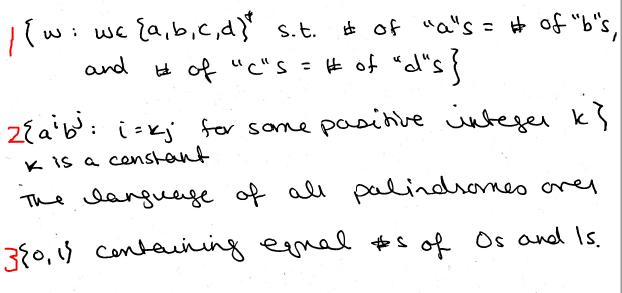 1 { w : w ∈ {a,b,c,d}* s.t. # of "a"s = # of "b"s,
and # of "c"s = # of "d"s }
2 {aⁱbʲ : i = kj for some positive integer k }
k is a constant
The language of all palindromes over
3 {0,1} containing equal #s of 0s and 1s.